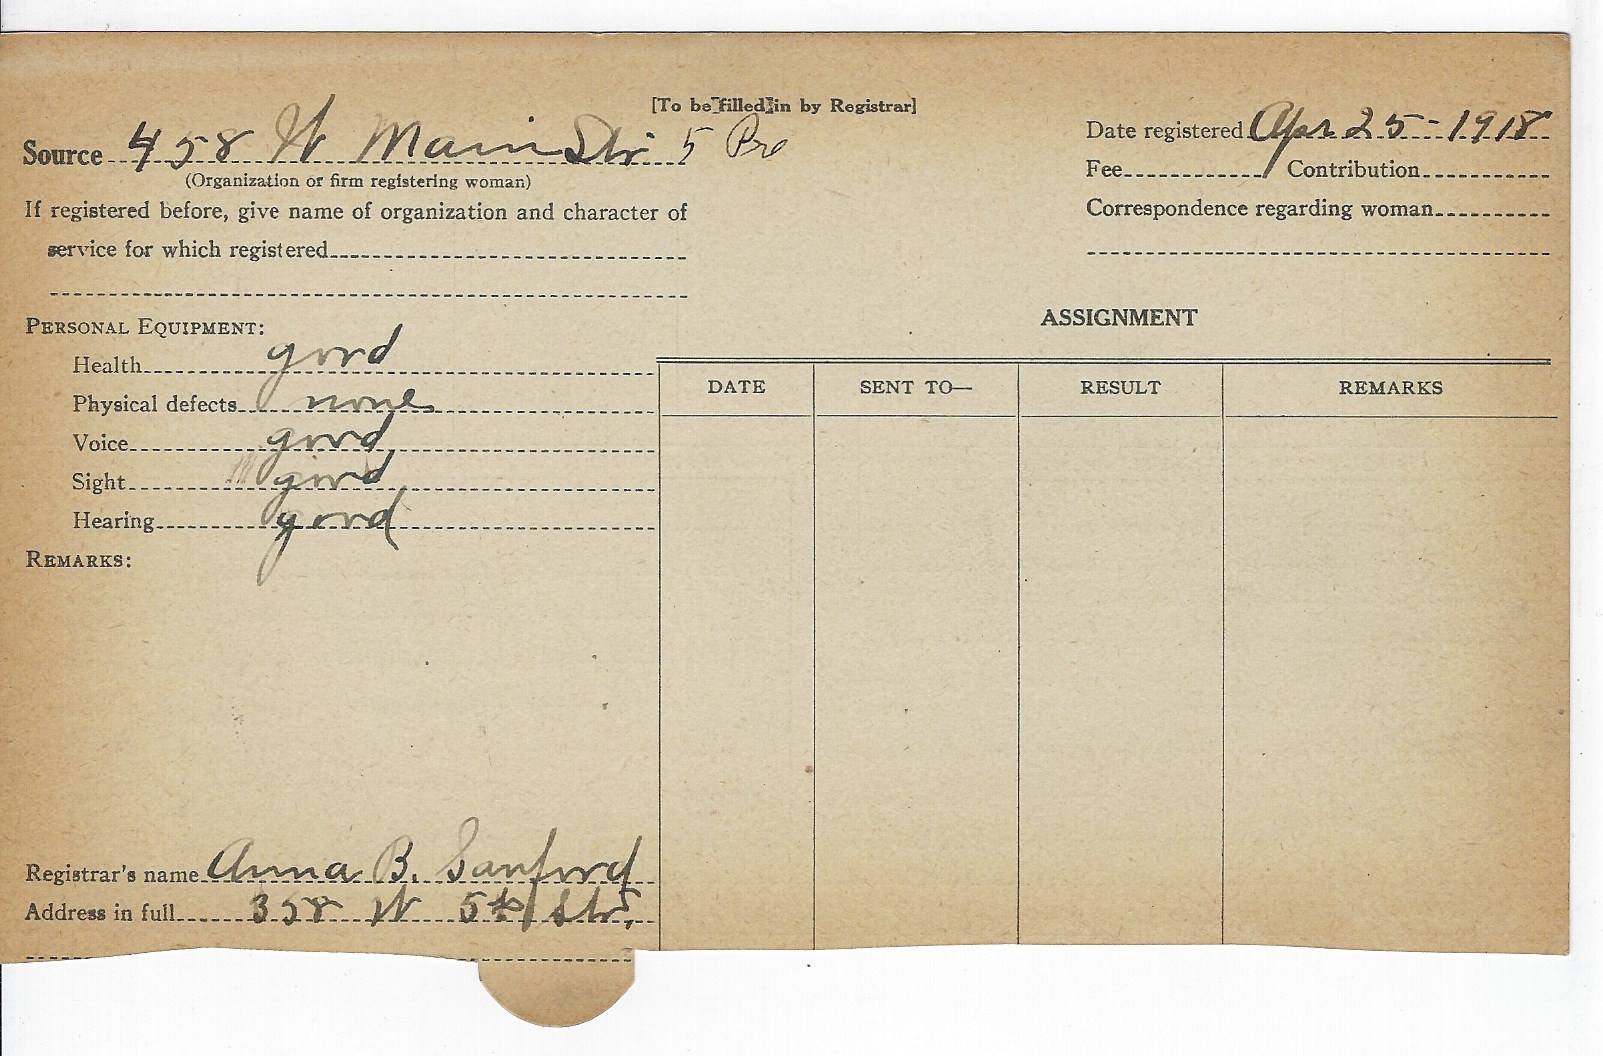 [To be filled in by Registrar]
Source 458 W Main Str 5 Pre
(Organization or firm registering woman)
If registered before, give name of organization and character of
service for which registered
Date registered Apr 25-1918
Fee Contribution
Correspondence regarding woman
PERSONAL EQUIPMENT:
Health good
Physical defects none
Voice good
Sight good
Hearing good
REMARKS:
ASSIGNMENT
DATE SENT TO— RESULT REMARKS
Registrar's name Anna B. Sanford
Address in full 358 W 5th Str,